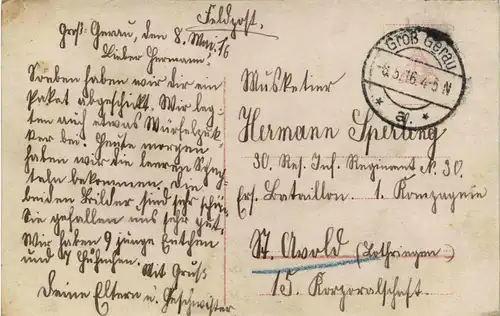 Feldpost.
Groß-Gerau, den 8. Mai 16
Lieber Hermann!
Soeben haben wir dir ein
Paket abgeschickt. Wir leg-
ten auch etwas Würfelzuk-
ker bei. Heute morgen
haben wir die leeren Schach-
teln bekommen. Die
beiden Bilder sind sehr schön.
Sie gefallen uns sehr gut.
Wir haben 9 junge Entchen
und 7 Hühnchen.
Mit Gruß
Deine Eltern u. Geschwister
Groß Gerau
8.5.16. 4-5 N
* a. *
Musketier
Hermann Sperling
30. Res. Inf. Regiment N. 30.
Ers. Bataillon 1. Kompagnie
St. Avold (Lothringen)
15. Korporalschaft.